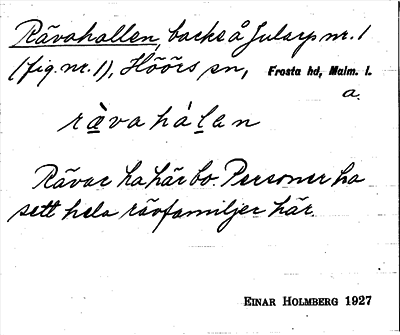 Rävahallen, backe å Jularp nr. 1
(fig. nr. 1), Höörs sn, Frosta hd, Malm. l.
a.
rävahàlen
Rävar ha här bo. Personer ha
sett hela rävfamiljer här.
EINAR HOLMBERG 1927